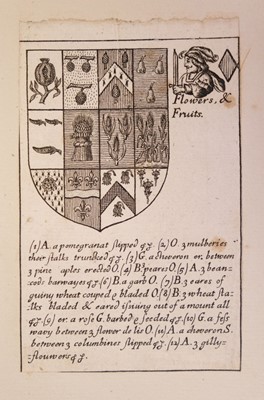 Flowers, &
Fruits.
(1) A. a pomegranat slipped q3. (2) O. 3 mulberies
their stalks trunked q3. (3) G. a cheveron er. between
3 pine aples erected O. (4) B. 3 peares O. (5) A. 3 bean-
cods barwayes q3. (6) B. a garb O. (7) B. 3 eares of
guiny wheat couped & bladed O. (8) B. 3 wheat sta-
lks bladed & eared issuing out of a mount all
q3. (9) er. a rose G. barbed & seeded q3. (10) G. a fess
wavy between 3 flower de lis O. (11) A. a cheveron S.
between 3 columbines slipped q3. (12) A. 3 gilly-
flouvvers q3.